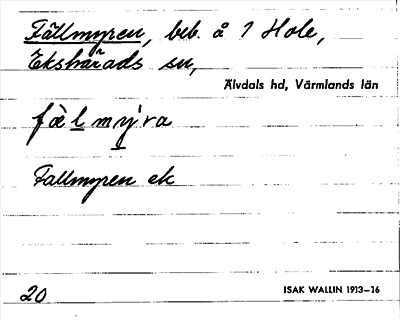 Fällmyren, beb. å 7 Hole,
Ekshärads sn,
Älvdals hd, Värmlands län
fä̀l my̍ra
Fallmyren ek
20
ISAK WALLIN 1913–16